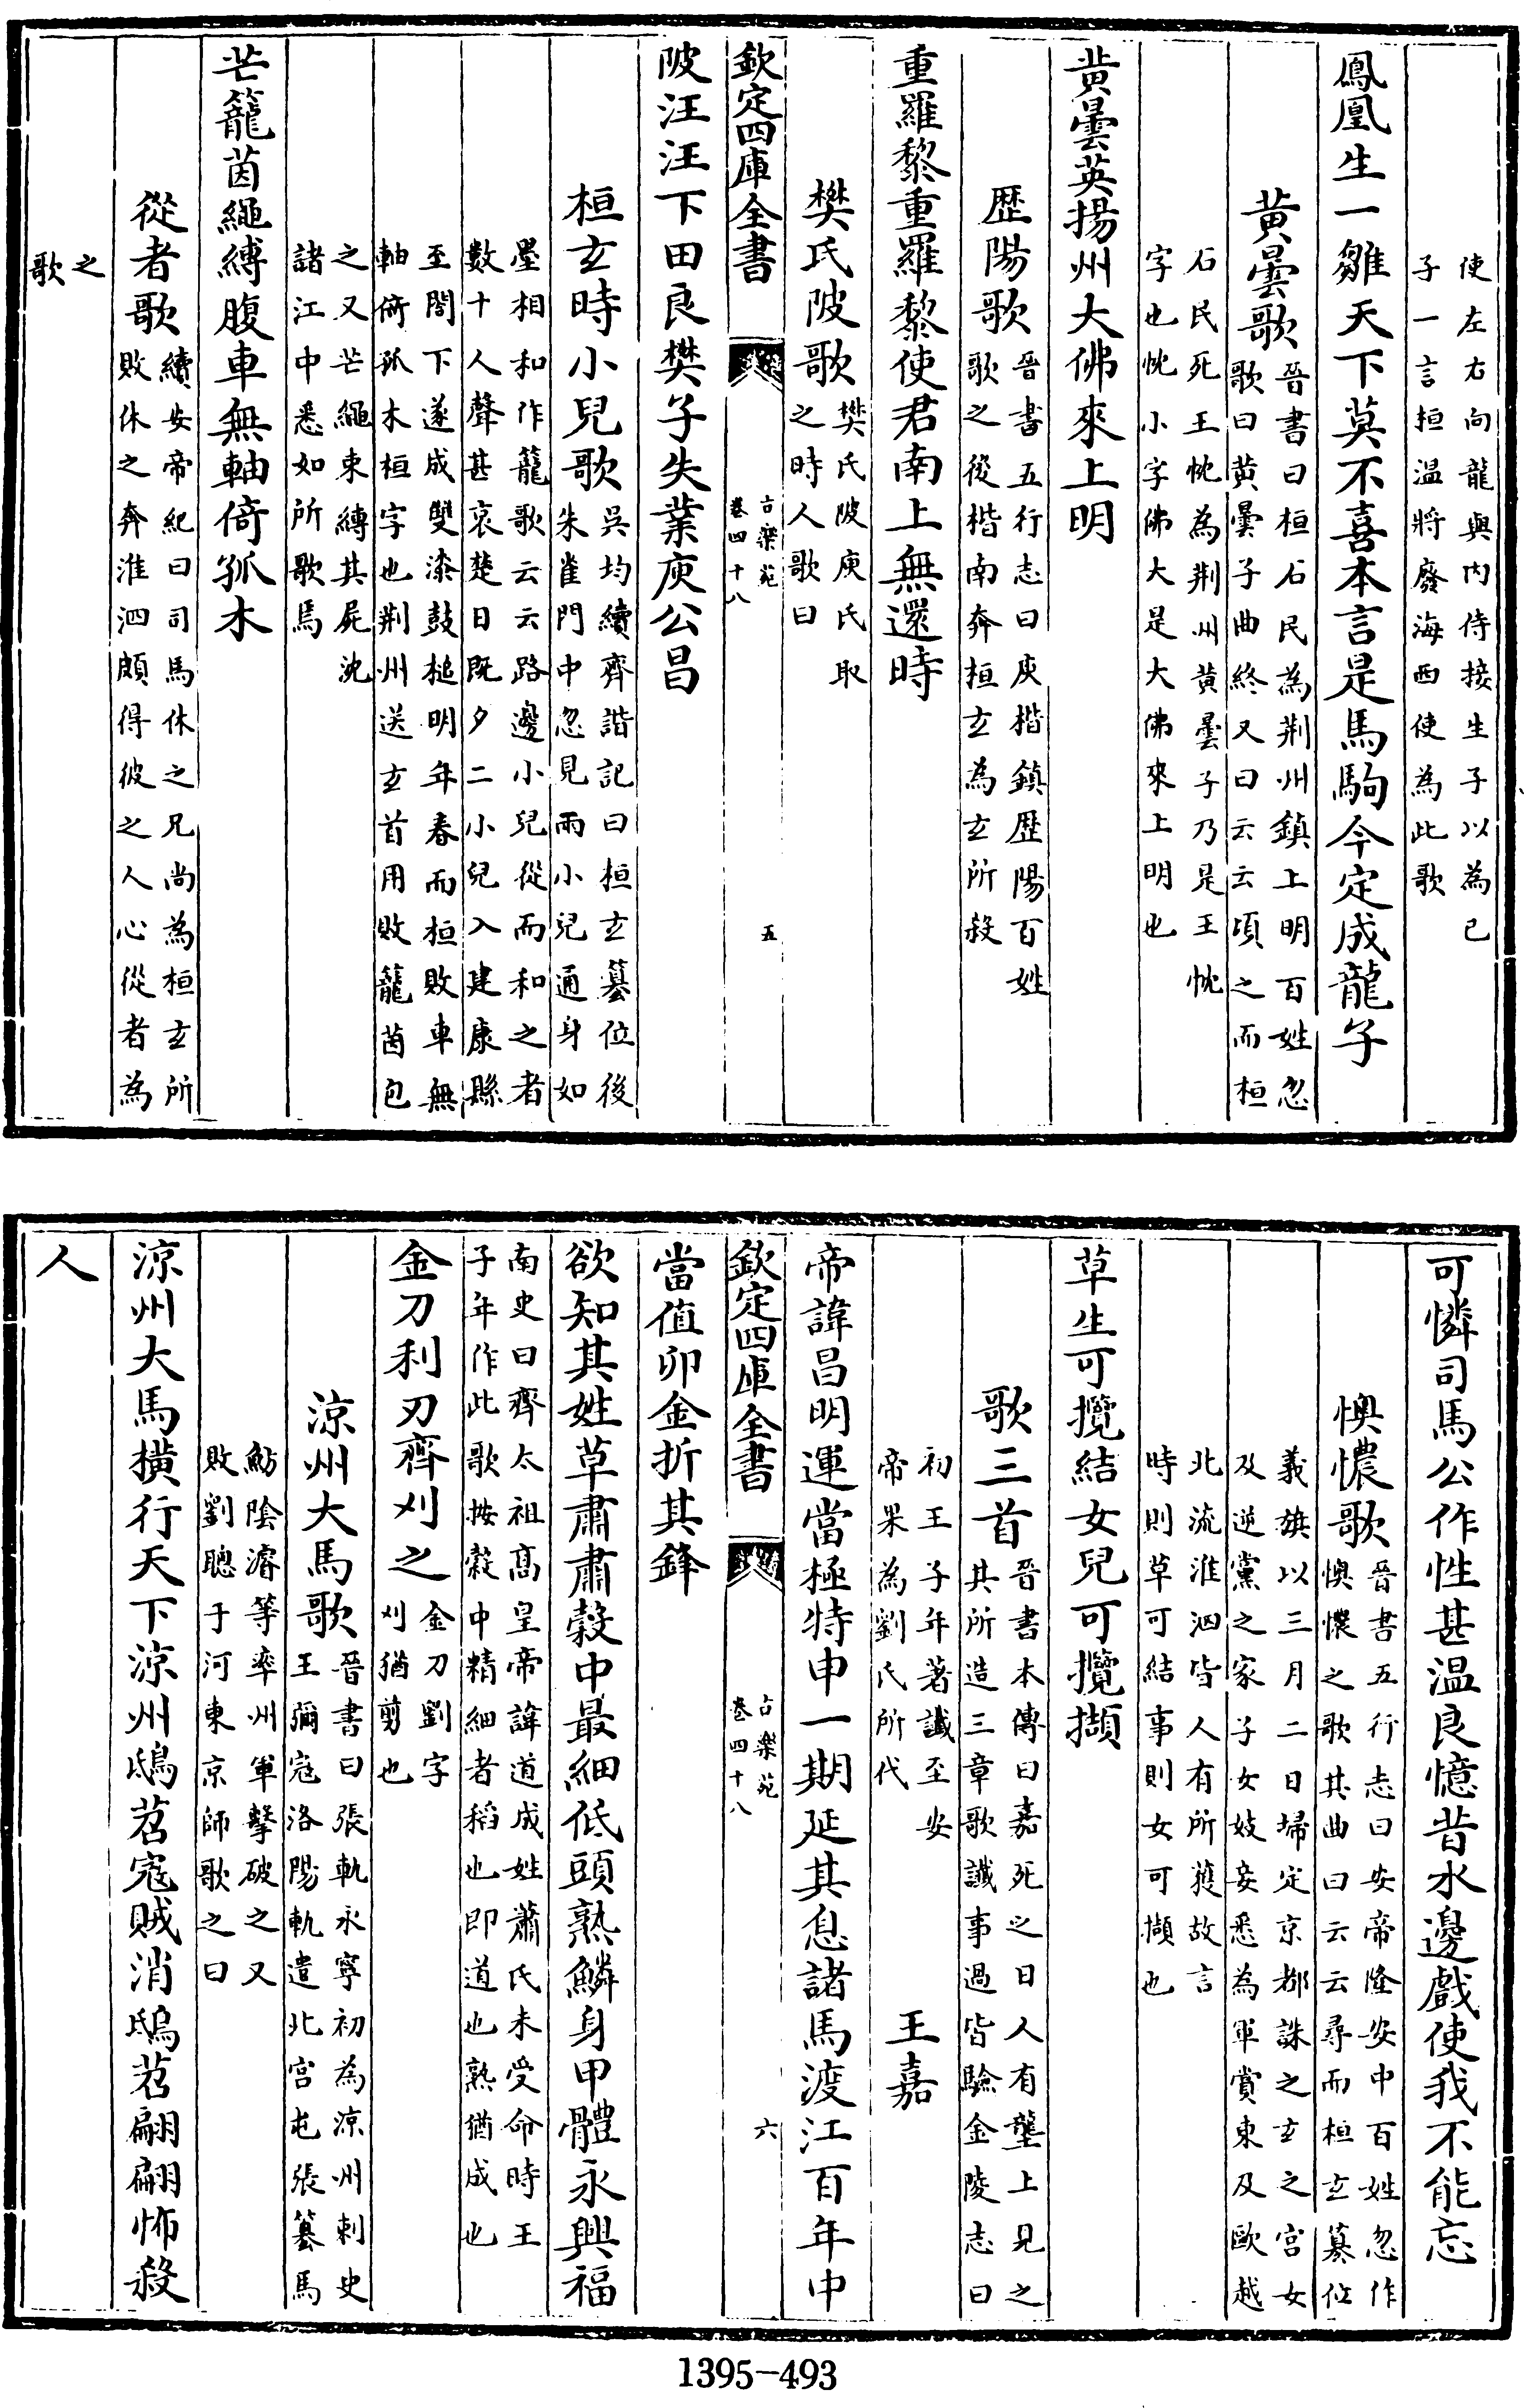 使左右向龍與内侍接生子以為己
子一言桓温將廢海西使為此歌
鳳凰生一雛天下莫不喜本言是馬駒今定成龍子
黄曇歌晉書曰桓石民為荆州鎮上明百姓忽
歌曰黄曇子曲終又曰云云頃之而桓
石民死王忱為荆州黄曇子乃是王忱
字也忱小字佛大是大佛來上明也
黄曇英揚州大佛來上明
歴陽歌晉書五行志曰庾楷鎮歴陽百姓
歌之後楷南奔桓玄為玄所殺
重羅黎重羅黎使君南上無還時
樊氏陂歌樊氏陂庾氏取
之時人歌曰
欽定四庫全書
古樂苑
卷四十八
五
陂汪汪下田良樊子失業庾公昌
桓玄時小兒歌吳均續齊諧記曰桓玄簒位後
朱雀門中忽見兩小兒通身如
墨相和作籠歌云云路邊小兒從而和之者
數十人聲甚哀楚日既夕二小兒入建康縣
至閤下遂成雙漆鼓槌明年春而桓敗車無
軸倚孤木桓字也荆州送玄首用敗籠茵包
之又芒繩束縛其屍沈
諸江中悉如所歌焉
芒籠茵繩縛腹車無軸倚孤木
從者歌續安帝紀曰司馬休之兄尚為桓玄所
敗休之奔淮泗頗得彼之人心從者為
之
歌
可憐司馬公作性甚温良憶昔水邊戲使我不能忘
懊憹歌晉書五行志曰安帝隆安中百姓忽作
懊憹之歌其曲曰云云尋而桓玄簒位
義旗以三月二日埽定京都誅之玄之宫女
及逆黨之家子女妓妾悉為軍賞東及歐越
北流淮泗皆人有所獲故言
時則草可結事則女可擷也
草生可攬結女兒可攬擷
歌三首晉書本傳曰嘉死之日人有壟上見之
其所造三章歌讖事過皆驗金陵志曰
初王子年著讖至安
帝果為劉氏所代
王嘉
帝諱昌明運當極特申一期延其息諸馬渡江百年中
欽定四庫全書
古樂苑
卷四十八
六
當值卯金折其鋒
欲知其姓草肅肅穀中最細低頭熟鱗身甲體永興福
南史曰齊太祖高皇帝諱道成姓蕭氏未受命時王
子年作此歌按穀中精細者稻也即道也熟猶成也
金刀利刃齊刈之金刀劉字
刈猶剪也
涼州大馬歌晉書曰張軌永寧初為涼州刺史
王彌宼洛陽軌遣北宫屯張簒馬
魴陰濬等率州軍擊破之又
敗劉聰于河東京師歌之曰
涼州大馬横行天下涼州鴟苕宼賊消鴟苕翩翩怖殺
人
1395-493